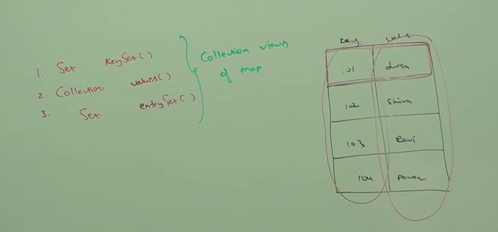 1. Set keySet()
2. Collection values()
3. Set entrySet()
Collection views
of map
key value
101 durga
102 Shiva
103 Ravi
104 Pavan